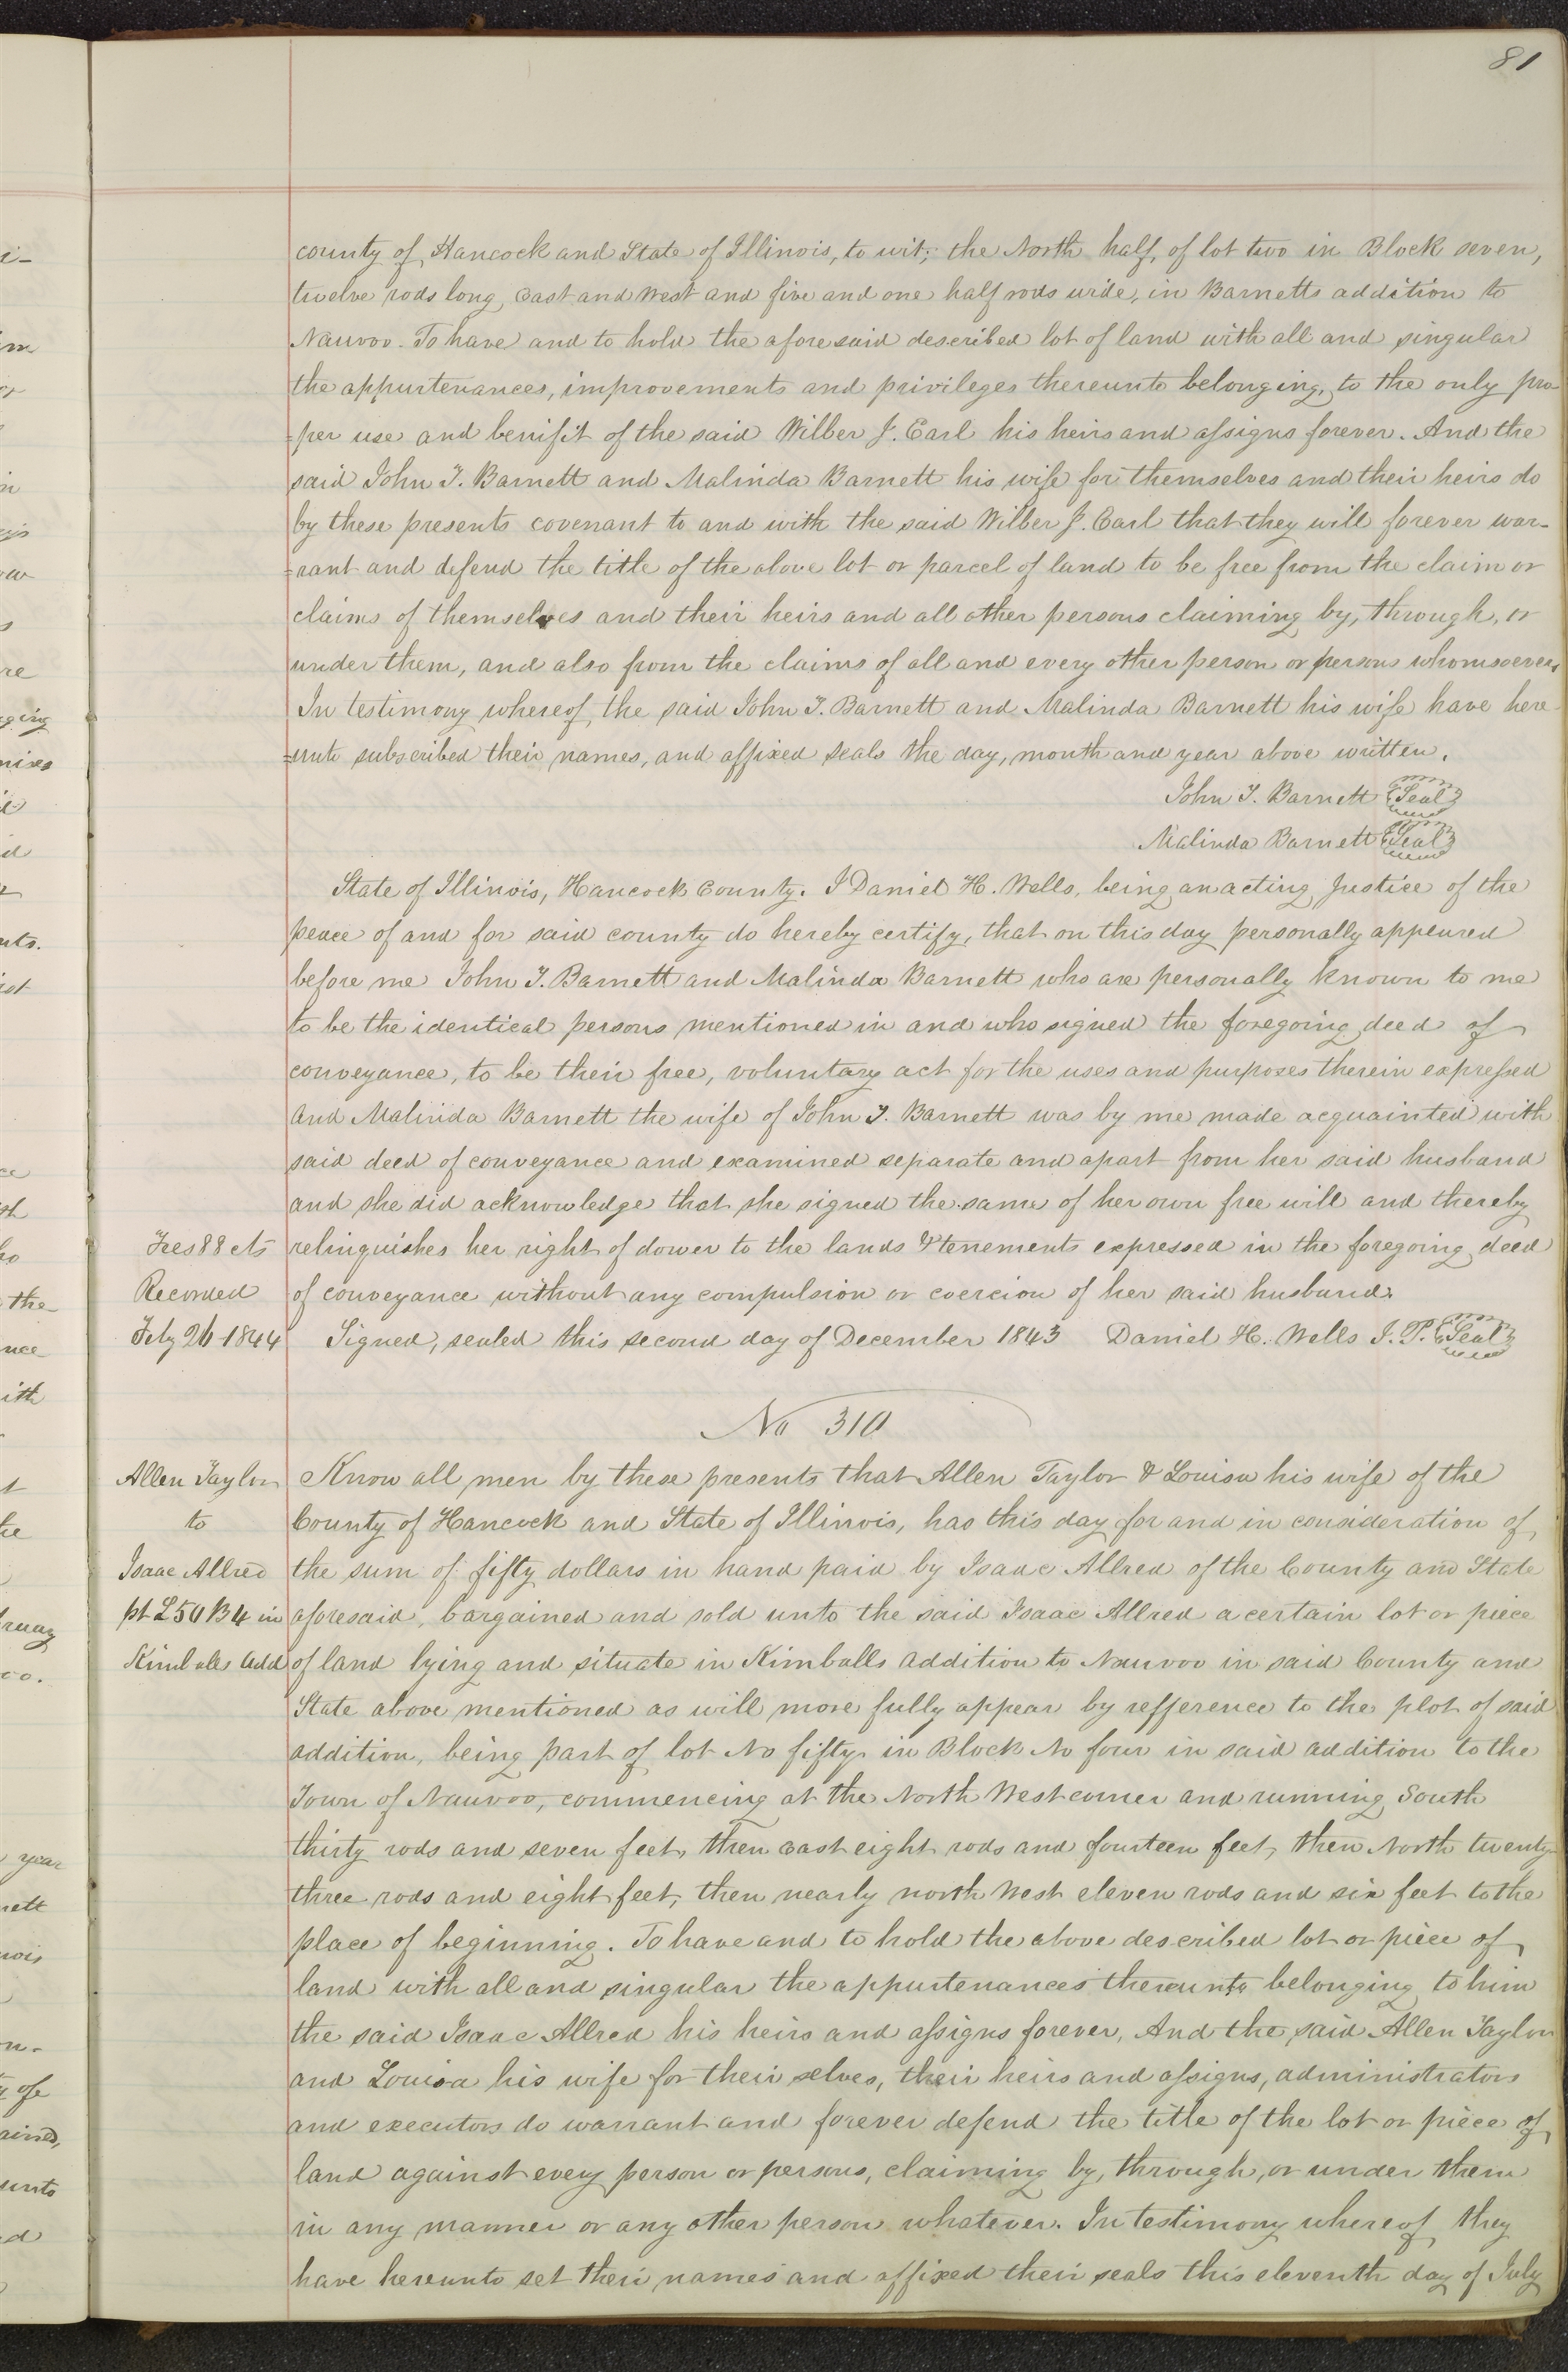 81
county of Hancock and State of Illinois, to wit; the North half, of lot two in Block seven,
twelve rods long, east and West and five and one half rods wide, in Barnetts addition to
Nauvoo. To have and to hold the aforesaid described lot of land with all and singular
the appurtenances, improvements and privileges thereunto belonging, to the only pro-
=per use and benifit of the said Wilber J. Earl his heirs and assigns forever. And the
said John T. Barnett and Malinda Barnett his wife for themselves and their heirs do
by these presents covenant to and with the said Wilber J. Earl that they will forever war-
=rant and defend the title of the above lot or parcel of land to be free from the claim or
claims of themselves and their heirs and all other persons claiming by, through, or
under them, and also from the claims of all and every other person or persons whomsoever,
In testimony whereof, the said John T. Barnett and Malinda Barnett his wife have here-
=unto subscribed their names, and affixed seals the day, month and year above written.
John T. Barnett {Seal}
Malinda Barnett {Seal}
State of Illinois, Hancock County. I Daniel H. Wells, being an acting Justice of the
peace of and for said county do hereby certify, that on this day personally appeared
before me John T. Barnett and Malinda Barnett who are personally known to me
to be the identical persons mentioned in and who signed the foregoing deed of
conveyance, to be their free, voluntary act for the uses and purposes therein expressed
and Malinda Barnett the wife of John T. Barnett was by me made acquainted with
said deed of conveyance and examined separate and apart from her said husband
and she did acknowledge that she signed the same of her own free will and thereby
Fees 88 cts relinquishes her right of dower to the lands & tenements expressed in the foregoing deed
Recorded of conveyance without any compulsion or coercion of her said husband.
Feby 26 1844 Signed, sealed this second day of December 1843 Daniel H. Wells J. P. {Seal}
No 310
Allen Taylor Know all men by these presents that Allen Taylor & Louisa his wife of the
to County of Hancock and State of Illinois, has this day for and in consideration of
Isaac Allred the sum of fifty dollars in hand paid by Isaac Allred of the County and State
pt L 50 B 4 in aforesaid, bargained and sold unto the said Isaac Allred a certain lot or piece
Kimballs Add of land lying and situate in Kimballs addition to Nauvoo in said County and
State above mentioned as will more fully appear by refference to the plot of said
addition, being part of lot No fifty in Block No four in said addition to the
Town of Nauvoo, commencing at the North West corner and running South
thirty rods and seven feet, then east eight rods and fourteen feet, then North twenty
three rods and eight feet, then nearly north West eleven rods and six feet to the
place of beginning. To have and to hold the above described lot or piece of
land with all and singular the appurtenances thereunto belonging to him
the said Isaac Allred his heirs and assigns forever, And the said Allen Taylor
and Louisa his wife for their selves, their heirs and assigns, administrators
and executors do warrant and forever defend the title of the lot or piece of
land against every person or persons, claiming by, through, or under them
in any manner or any other person whatever. In testimony whereof they
have hereunto set their names and affixed their seals this eleventh day of July